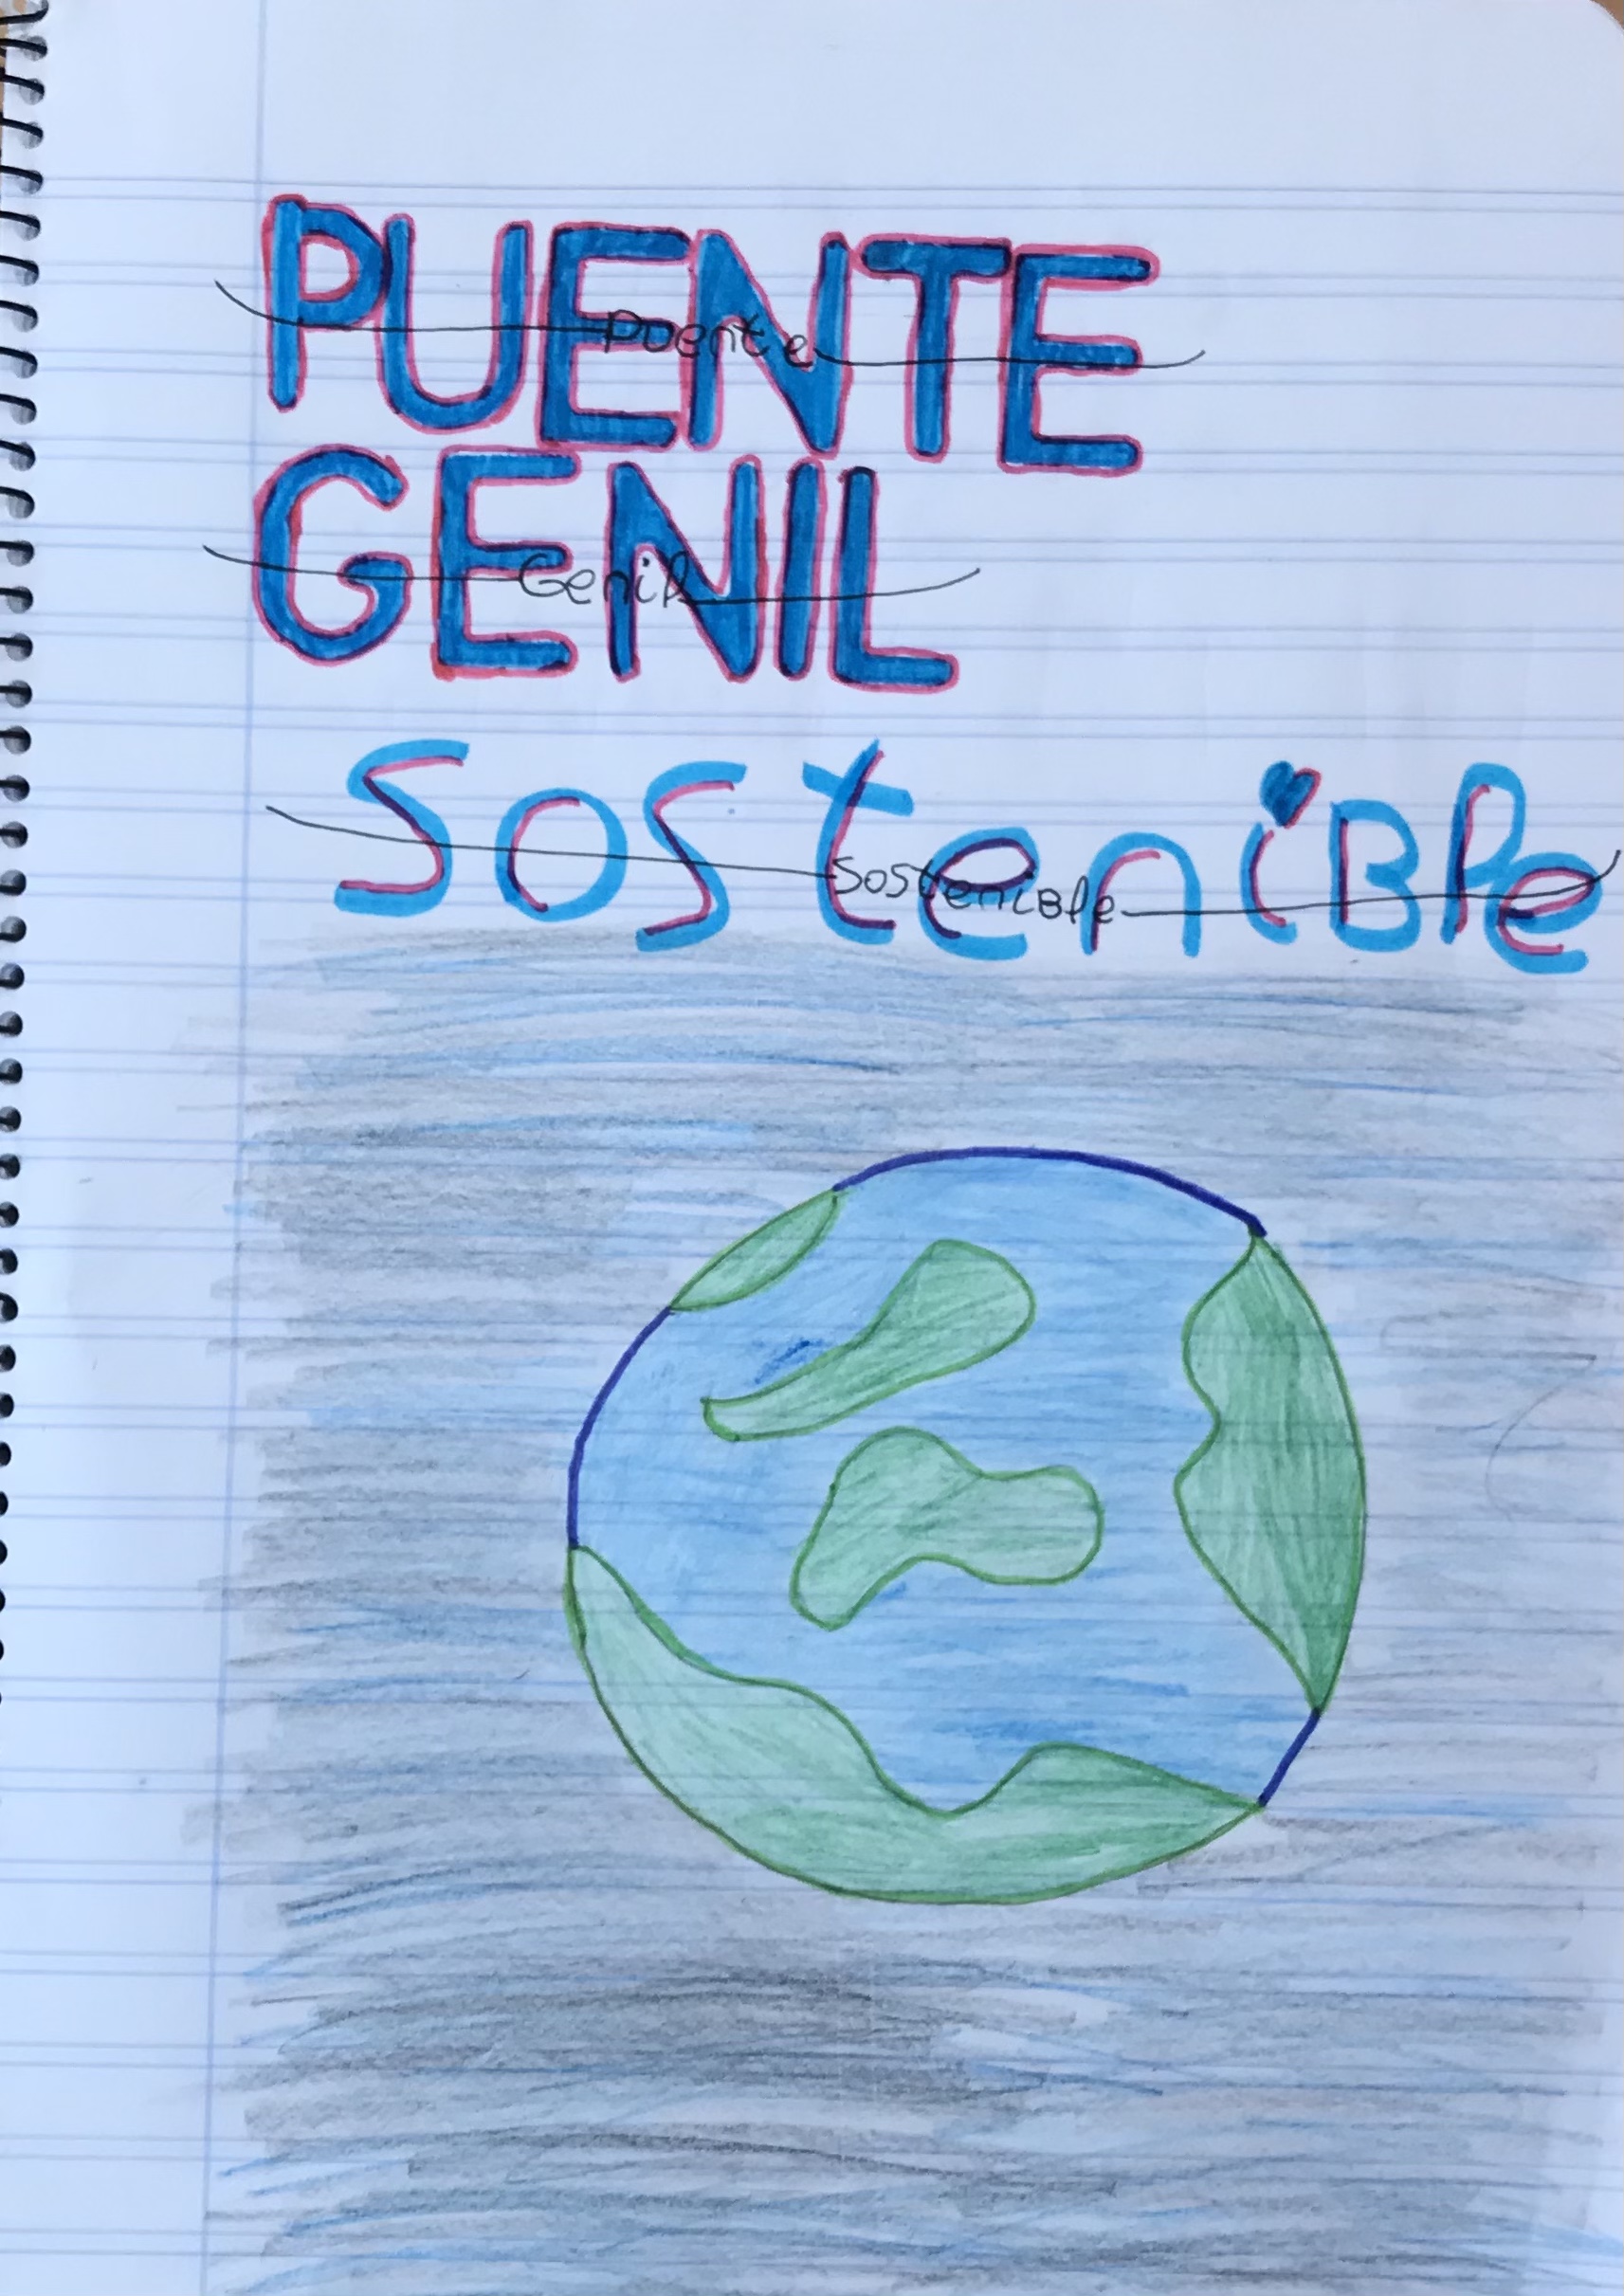 PUENTE
Puente
GENIL
Genil
SosteniBle
SosteniBle